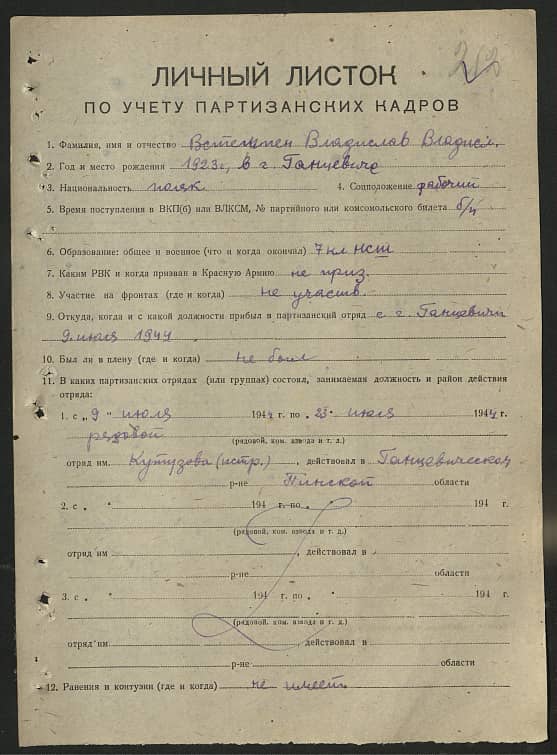 ЛИЧНЫЙ ЛИСТОК
ПО УЧЕТУ ПАРТИЗАНСКИХ КАДРОВ
1. Фамилия, имя и отчество Владислав Владисл.
2. Год и место рождения 1923 г, в г Ганцевичи
3. Национальность поляк 4. Соцположение рабочий
5. Время поступления в ВКП(б) или ВЛКСМ, № партийного или комсомольского билета б/п
6. Образование: общее и военное (что и когда окончал) 7 кл НСШ
7. Каким РВК и когда призван в Красную Армию не приз.
8. Участие на фронтах (где и когда) не участв.
9. Откуда, когда и с какой должности прибыл в партизанский отряд с г. Ганцевичи
9 июля 1944
10. Был ли в плену (где и когда) не был
11. В каких партизанских отрядах (или группах) состоял, занимаемая должность и район действия
отряда:
1. с „9 " июля 1944 г. по „23 " июля 1944 г.
рядовой
(рядовой, ком. взвода и т. д.)
отряд им. Кутузова (истр.), действовал в Ганцевическом
р-не Пинской области
2. с „ " 194 г. по „ " 194 г.
(рядовой, ком. взвода и т. д.)
отряд им , действовал в
р-не области
3. с „ " 194 г. по „ " 194 г.
(рядовой, ком. взвода и т. д.)
отряд им действовал в
р-не области
12. Ранения и контузии (где и когда) не имеет